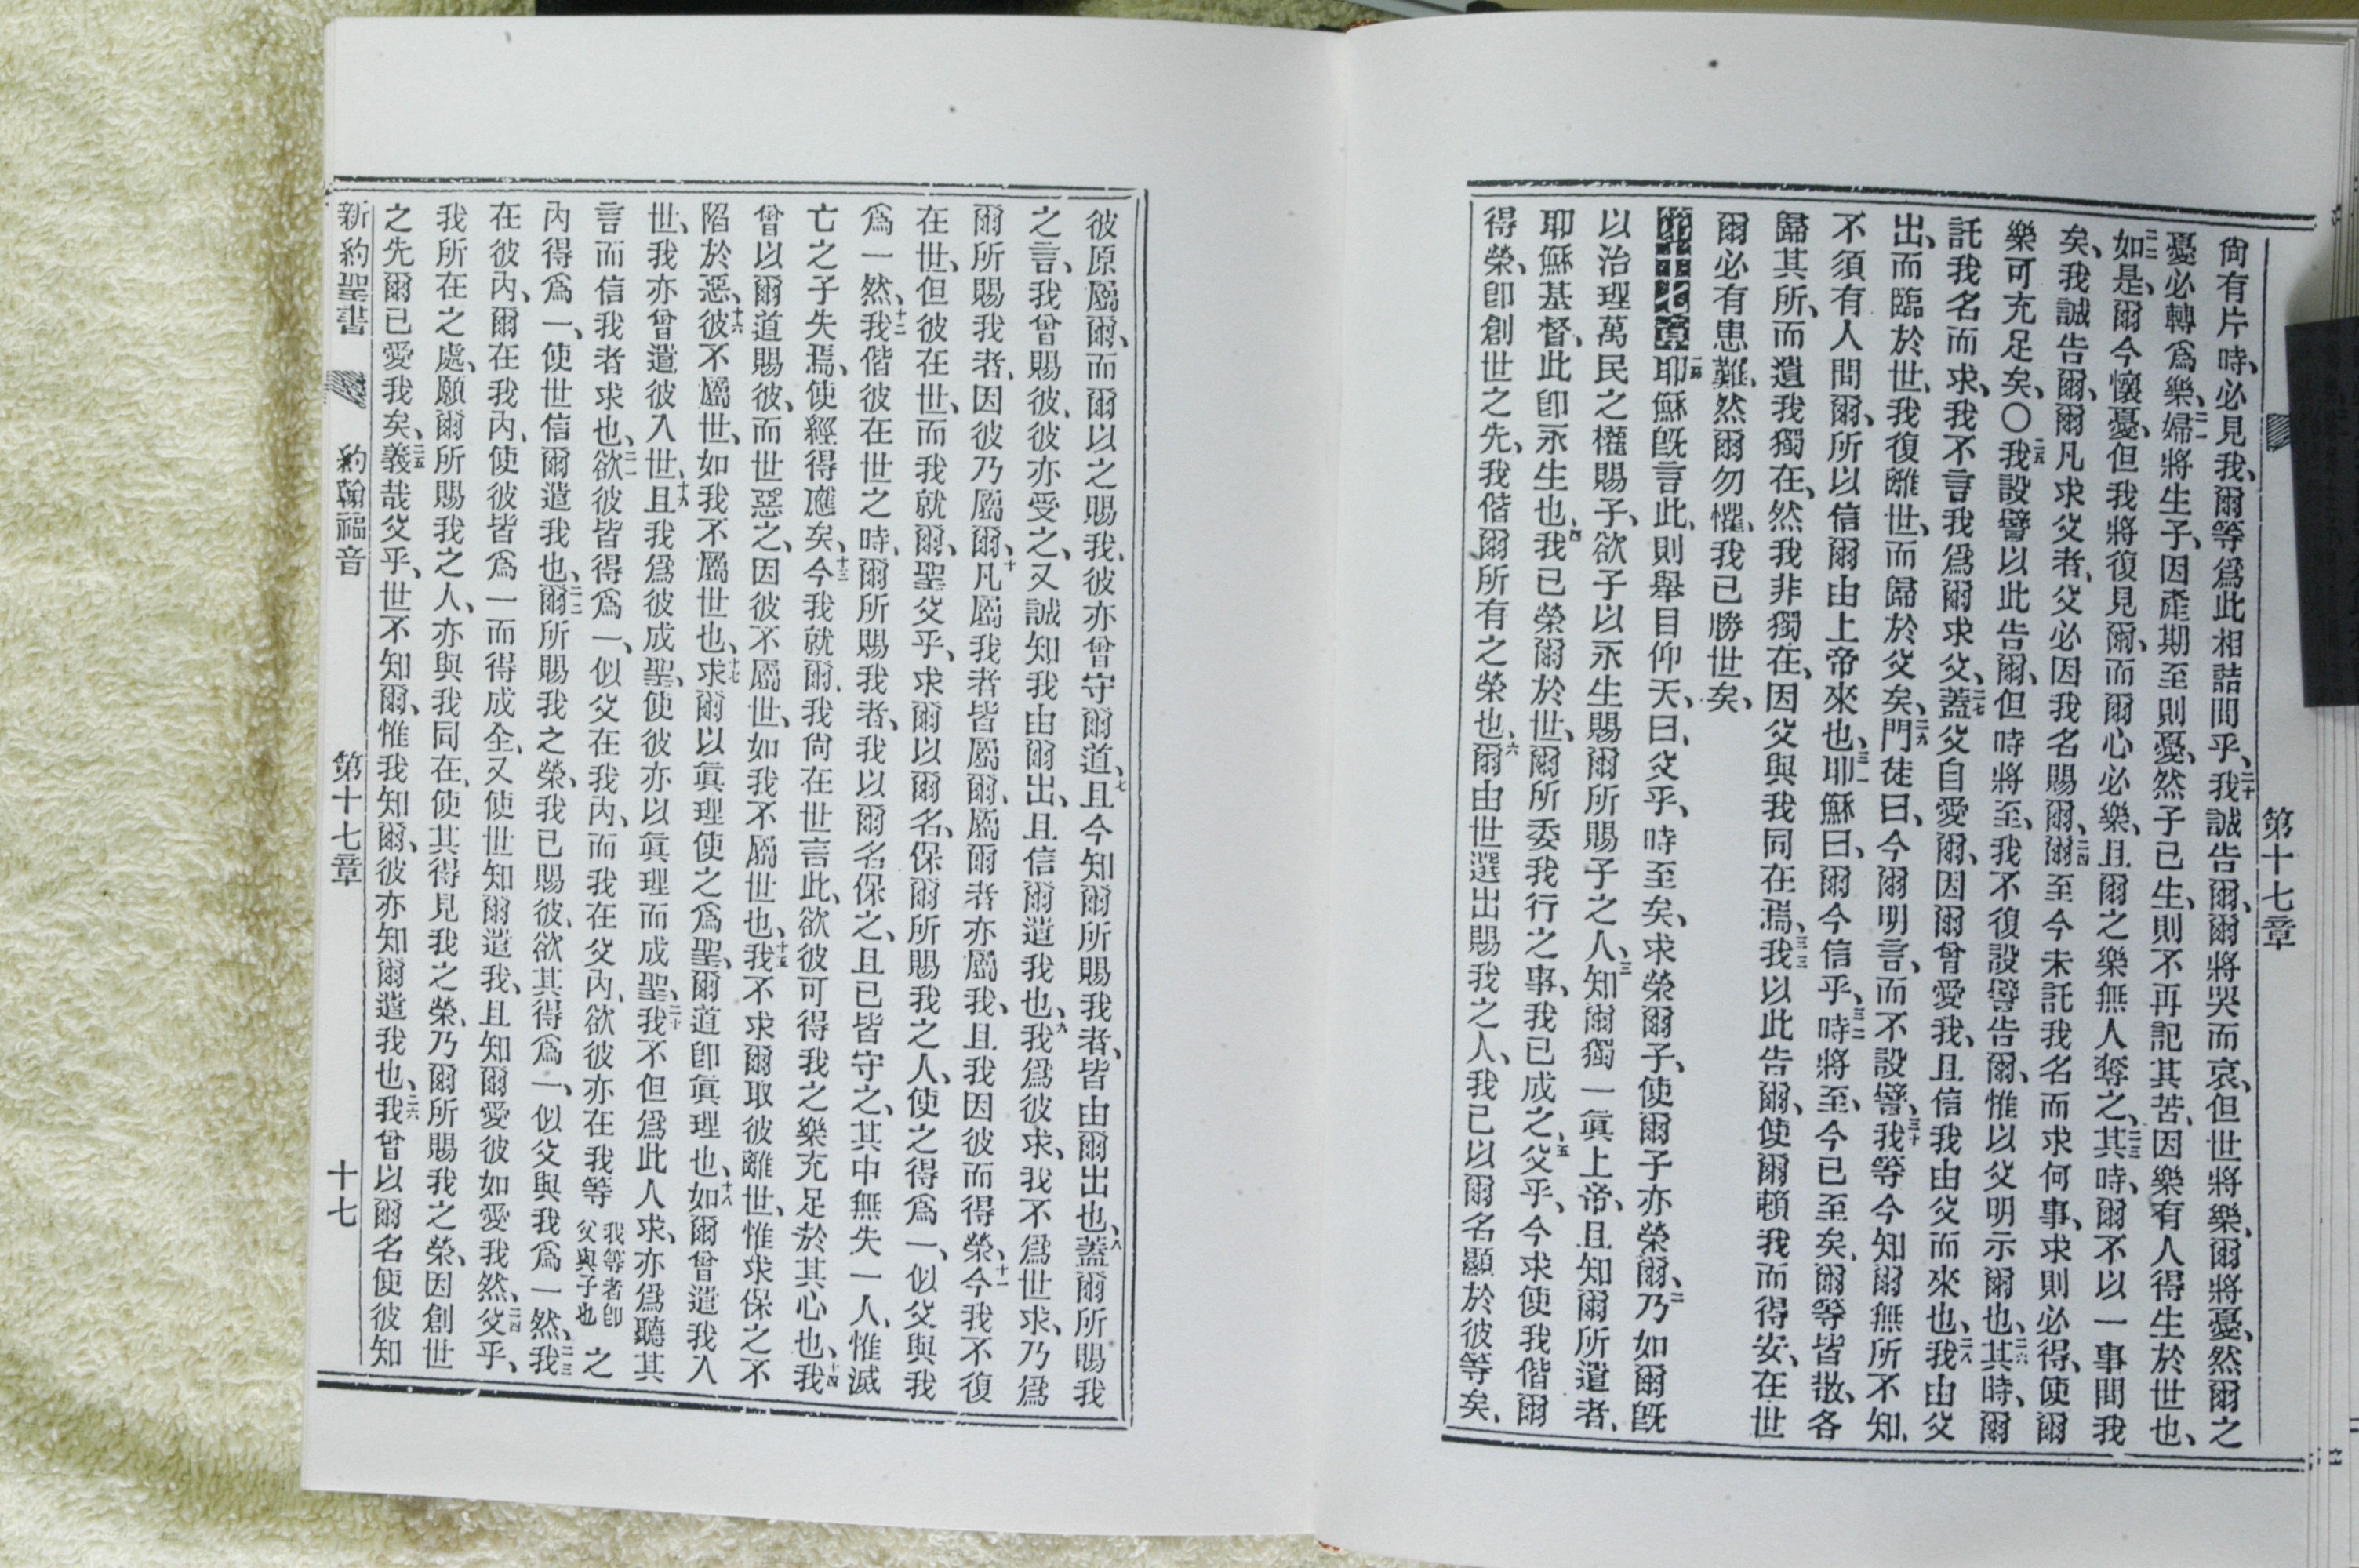 第十七章
尙有片時、必見我、爾等爲此相詰問乎、二十我誠告爾、爾將哭而哀、但世將樂、爾將憂、然爾之
憂必轉爲樂、二一婦將生子、因產期至則憂、然子已生、則不再記其苦、因樂有人得生於世也、
二二如是、爾今懷憂、但我將復見爾、而爾心必樂、且爾之樂無人奪之、二三其時、爾不以一事問我
矣、我誠告爾、爾凡求父者、父必因我名賜爾、二四爾至今未託我名而求何事、求則必得、使爾
樂可充足矣、〇二五我設譬以此告爾、但時將至、我不復設譬告爾、惟以父明示爾也、二六其時、爾
託我名而求、我不言我爲爾求父、二七蓋父自愛爾、因爾曾愛我、且信我由父而來也、二八我由父
出、而臨於世、我復離世、而歸於父矣、二九門徒曰、今爾明言、而不設譬、三十我等今知爾無所不知、
不須有人問爾、所以信爾由上帝來也、三一耶穌曰、爾今信乎、三二時將至、今已至矣、爾等皆散、各
歸其所、而遺我獨在、然我非獨在、因父與我同在焉、三三我以此告爾、使爾賴我而得安、在世
爾必有患難、然爾勿懼、我已勝世矣、
第十七章一節耶穌旣言此、則舉目仰天、曰、父乎、時至矣、求榮爾子、使爾子亦榮爾、二乃如爾旣
以治理萬民之權賜子、欲子以永生賜爾所賜子之人、三知爾獨一眞上帝、且知爾所遣者、
耶穌基督、此卽永生也、四我已榮爾於世、爾所委我行之事、我已成之、五父乎、今求使我偕爾
得榮、卽創世之先、我偕爾所有之榮也、六爾由世選出賜我之人、我已以爾名顯於彼等矣、
彼原屬爾、而爾以之賜我、彼亦曾守爾道、七且今知爾所賜我者、皆由爾出也、八蓋爾所賜我
之言、我曾賜彼、彼亦受之、又誠知我由爾出、且信爾遣我也、九我爲彼求、我不爲世求、乃爲
爾所賜我者、因彼乃屬爾、十凡屬我者皆屬爾、屬爾者亦屬我、且我因彼而得榮、十一今我不復
在世、但彼在世、而我就爾、聖父乎、求爾以爾名、保爾所賜我之人、使之得爲一、似父與我
爲一然、十二我偕彼在世之時、爾所賜我者、我以爾名保之、且已皆守之、其中無失一人、惟滅
亡之子失焉、使經得應矣、十三今我就爾、我尙在世言此、欲彼可得我之樂充足於其心也、十四我
曾以爾道賜彼、而世惡之、因彼不屬世、如我不屬世也、十五我不求爾取彼離世、惟求保之不
陷於惡、十六彼不屬世、如我不屬世也、十七求爾以眞理使之爲聖、爾道卽眞理也、十八如爾曾遣我入
世、我亦曾遣彼入世、十九且我爲彼成聖、使彼亦以眞理而成聖、二十我不但爲此人求、亦爲聽其
言而信我者求也、二一欲彼皆得爲一、似父在我內、而我在父內、欲彼亦在我等我等者卽父與子也之
內得爲一、使世信爾遣我也、二二爾所賜我之榮、我已賜彼、欲其得爲一、似父與我爲一然、二三我
在彼內、爾在我內、使彼皆爲一而得成全、又使世知爾遣我、且知爾愛彼如愛我然、二四父乎、
我所在之處、願爾所賜我之人、亦與我同在、使其得見我之榮、乃爾所賜我之榮、因創世
之先爾已愛我矣、二五義哉父乎、世不知爾、惟我知爾、彼亦知爾遣我也、二六我曾以爾名使彼知
新約聖書 約翰福音 第十七章 十七